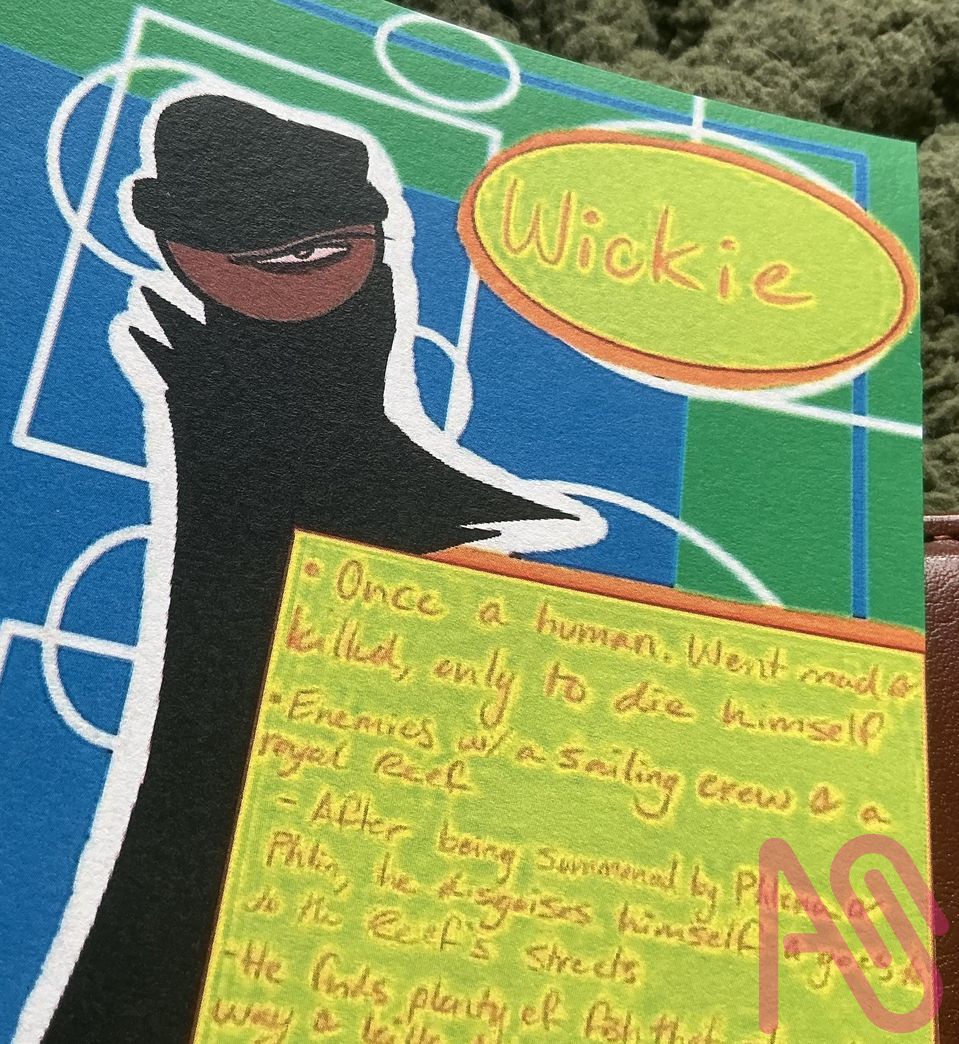 Wickie
• Once a human. Went mad &
killed, only to die himself
• Enemies w/ a sailing crew & a
royal Reef
- After being summoned by
Phlin, he disguises himself & goes
to the Reef's streets
- He finds plenty of fish that
way & kills